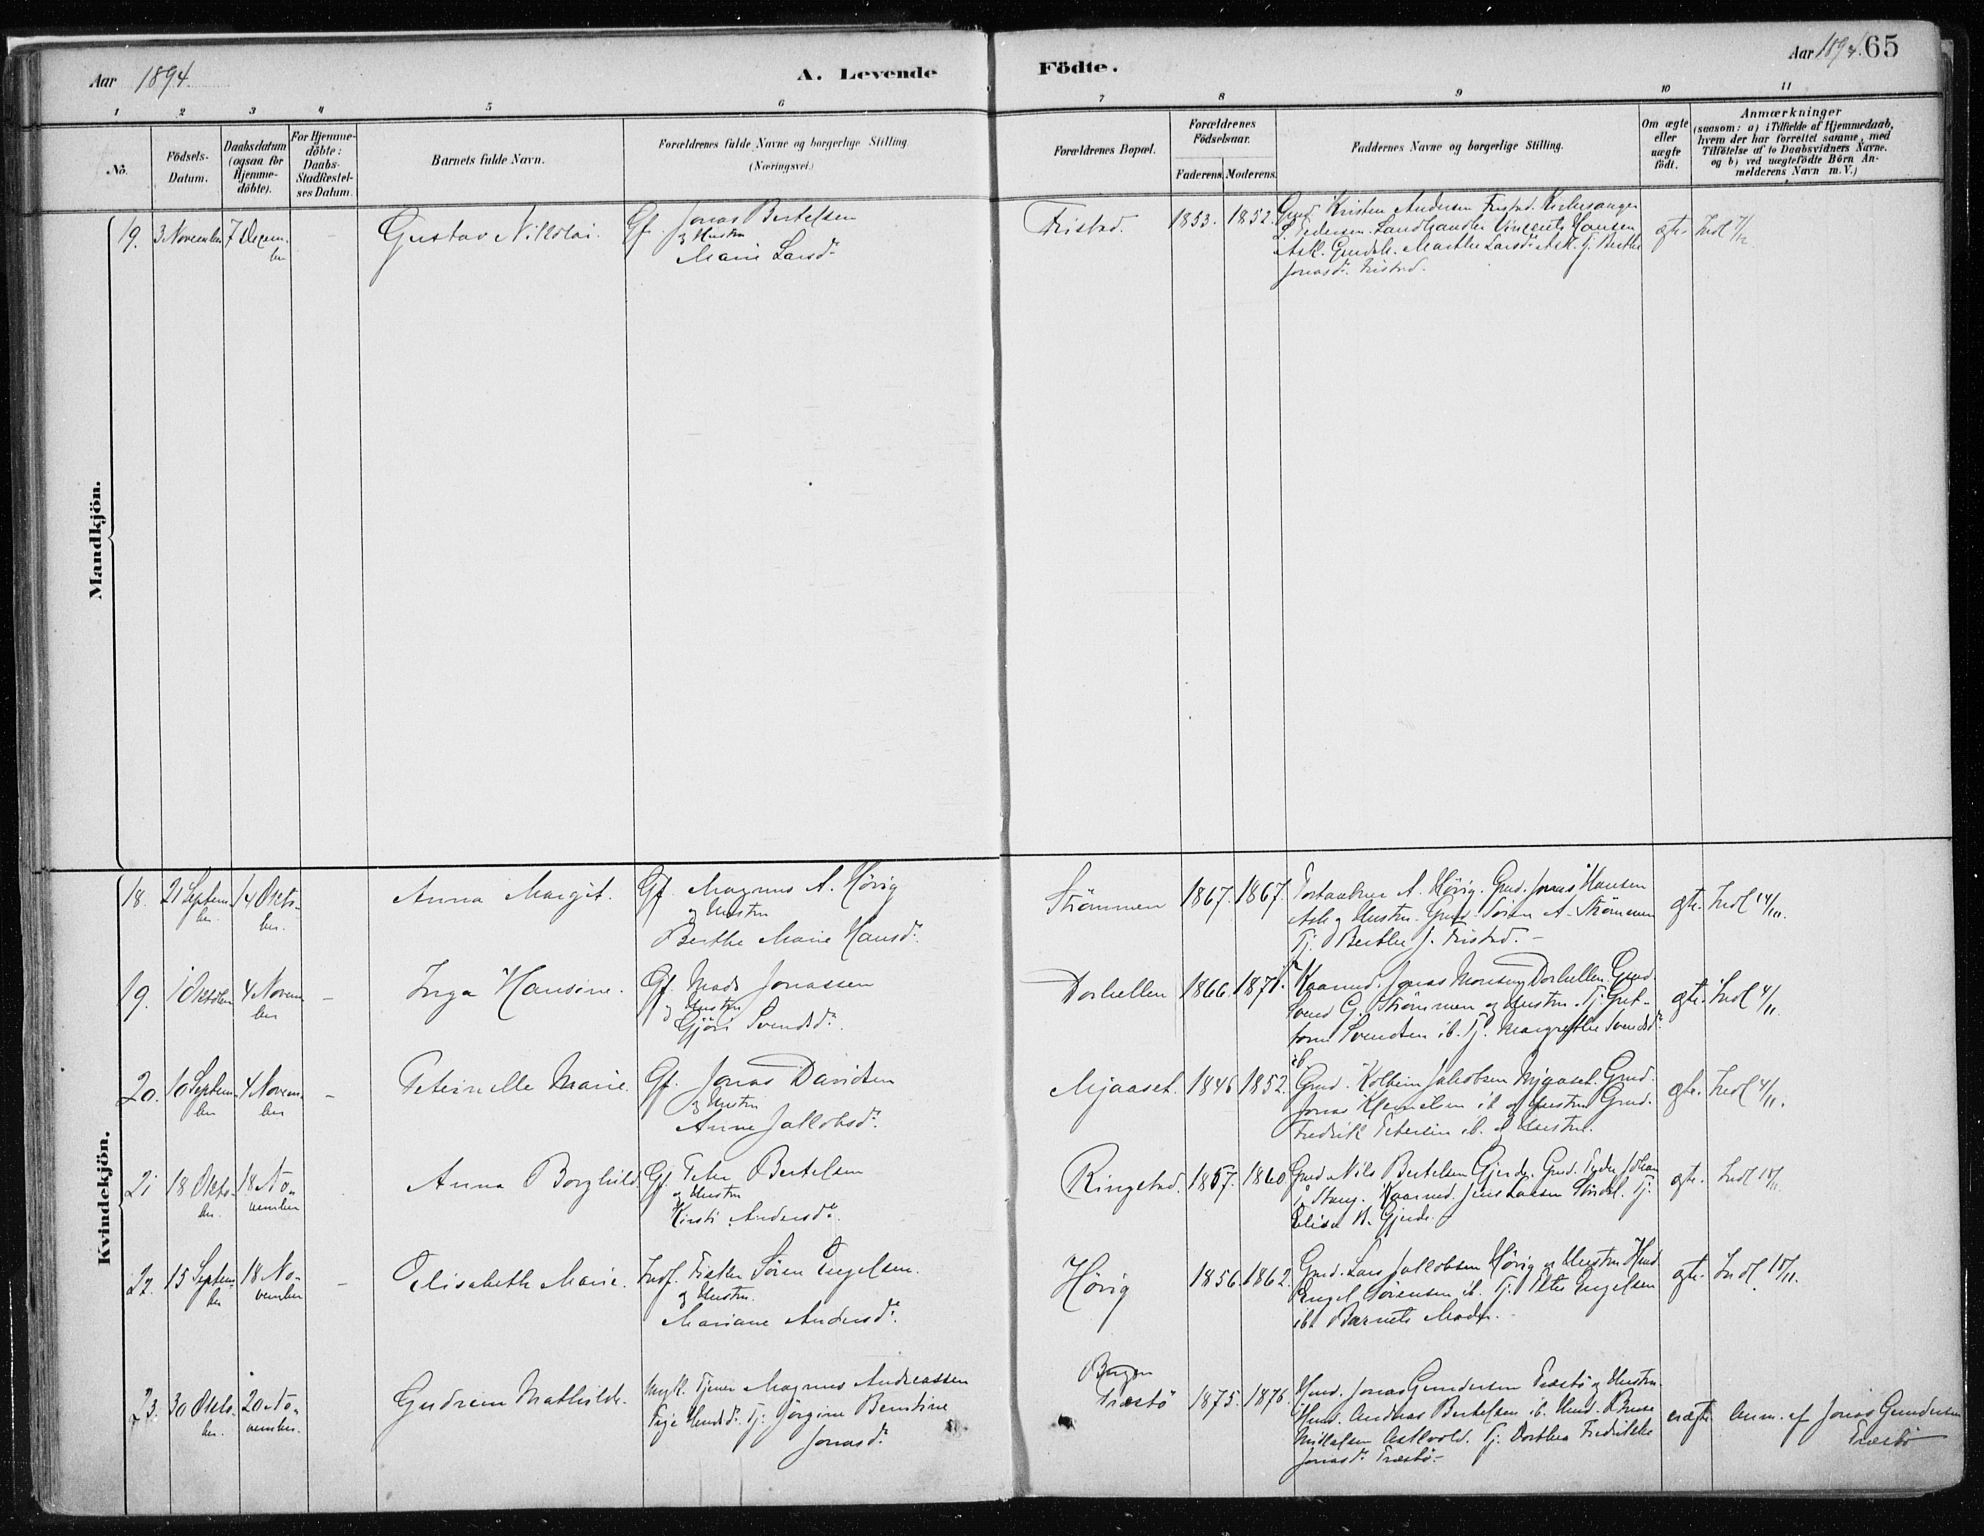 Aar 1894.
A. Levende Födte.
Aar 1894. 65
1 2 3 4 5 6 7 8 9 10 11
No.
Födsels-
Datum.
Daabsdatum
(ogsaa for
Hjemme-
döbte).
For Hjemme-
döbte:
Daabs-
Stadfæstel-
ses Datum.
Barnets fulde Navn.
Forældrenes fulde Navne og borgerlige Stilling
(Næringsvei.)
Forældrenes Bopæl.
Forældrenes
Födselsaar.
Faderens. Moderens.
Faddernes Navne og borgerlige Stilling.
Om ægte
eller
uægte
födt.
Anmærkninger
(saasom: a) i Tilfælde af Hjemmedaab,
hvem der har forrettet samme, med
Tilföielse af to Daabsvidners Navne.
og b) ved uægtefödte Börn An-
melderens Navn m. V.)
Mandkjön.
19. 3 November 7 Decem-
ber
Gustav Nikolai.
Gf. Jonas Bertelsen
og Hustru
Marie Larsdr.
Fristad. 1853. 1852.
Gmd. Kristen Andersen Fristad. Kirkesanger
Pedersen. Landhandler Vincents Hansen
Ask. Marthe Larsdr Ask. Tj. Berthe
Jonasdr. Fristad.
ægte Indl 7/12
Kvindekjön.
18. 21 Septem-
ber 14 Okto-
ber.
Anna Margit.
Gf. Magnus A. Hörig
og Hustru
Berthe Marie Hansdr.
Strömmen 1867. 1867.
A. Hörig. Gmd. Jonas Hansen
Ask og Hustru. Gmd. Sören A. Strömmen
Tj. Berthe J. Fristad. -
ægte. Indl 14/11.
19. 1 Oktober 4 Novem-
ber -
Inga Hansine.
Gf. Mads Jonassen
og Hustru
Gjöri Svendsdr.
Dorhellen 1866. 1871.
Kaarmd. Jonas Monsen Dorhellen. Gmd.
Svend G. Strömmen og Hustru. Tj. Gut-
torm Svendsen ib. Tj. Margrethe Svendsdr.
ib
ægte. Indl 4/11.
20. 10 Septem-
ber 4 Novem-
ber -
Peternelle Marie.
Gf. Jonas Davidsen
og Hustru
Anne Jakobsdr.
Mjaaset. 1846 1852.
Gmd. Kolbein Jakobsen Mjaaset. Gmd.
Jonas ib og Hustru. Gmd.
Fredrik Petersen ib. og Hustru.
ægte. Indl 4/11.
21 18 Okto-
ber. 18 No-
vember
Anna Borghild
Gf. Peter Bertelsen
og Hustru
Kirsti Andersdr.
Ringstad. 1857. 1860
Gmd Nils Bertelsen Gjerde. Gmd. Peder Johan
Kaarmd. Jens Larsen Tj.
Elisa N. Gjerde.
ægte. Indl 18/11
22. 15 Septem-
ber 18 No-
vember -
Elisabeth Marie.
Indf. Fisker Sören Engelsen.
og Hustru.
Mariane Andersdr.
Hörig 1856. 1862.
Gmd. Lars Jakobsen Hörig og Hustru Hmd
Engel Sörensen ib. Tj. Peter Engelsen
ib. Barnets Moder.
ægte. Indl 18/11.
23. 30 Okto-
ber. 20 No-
vember.
Gudrun Mathilde.
Ungk. Tjener Magnus Andreassen
Pige Tj. Jörgine Berntine
Jonasdr.
Bergen
Træstö 1875. 1876.
Hmd. Jonas Gundersen Træstö og Hustru.
Hmd. Andreas Bertelsen ib. Hmd.
Askvold. Tj. Dorthea Fredrikke
Jonasdr. Træstö -
uægte Anm. af Jonas Gundersen
Træstö